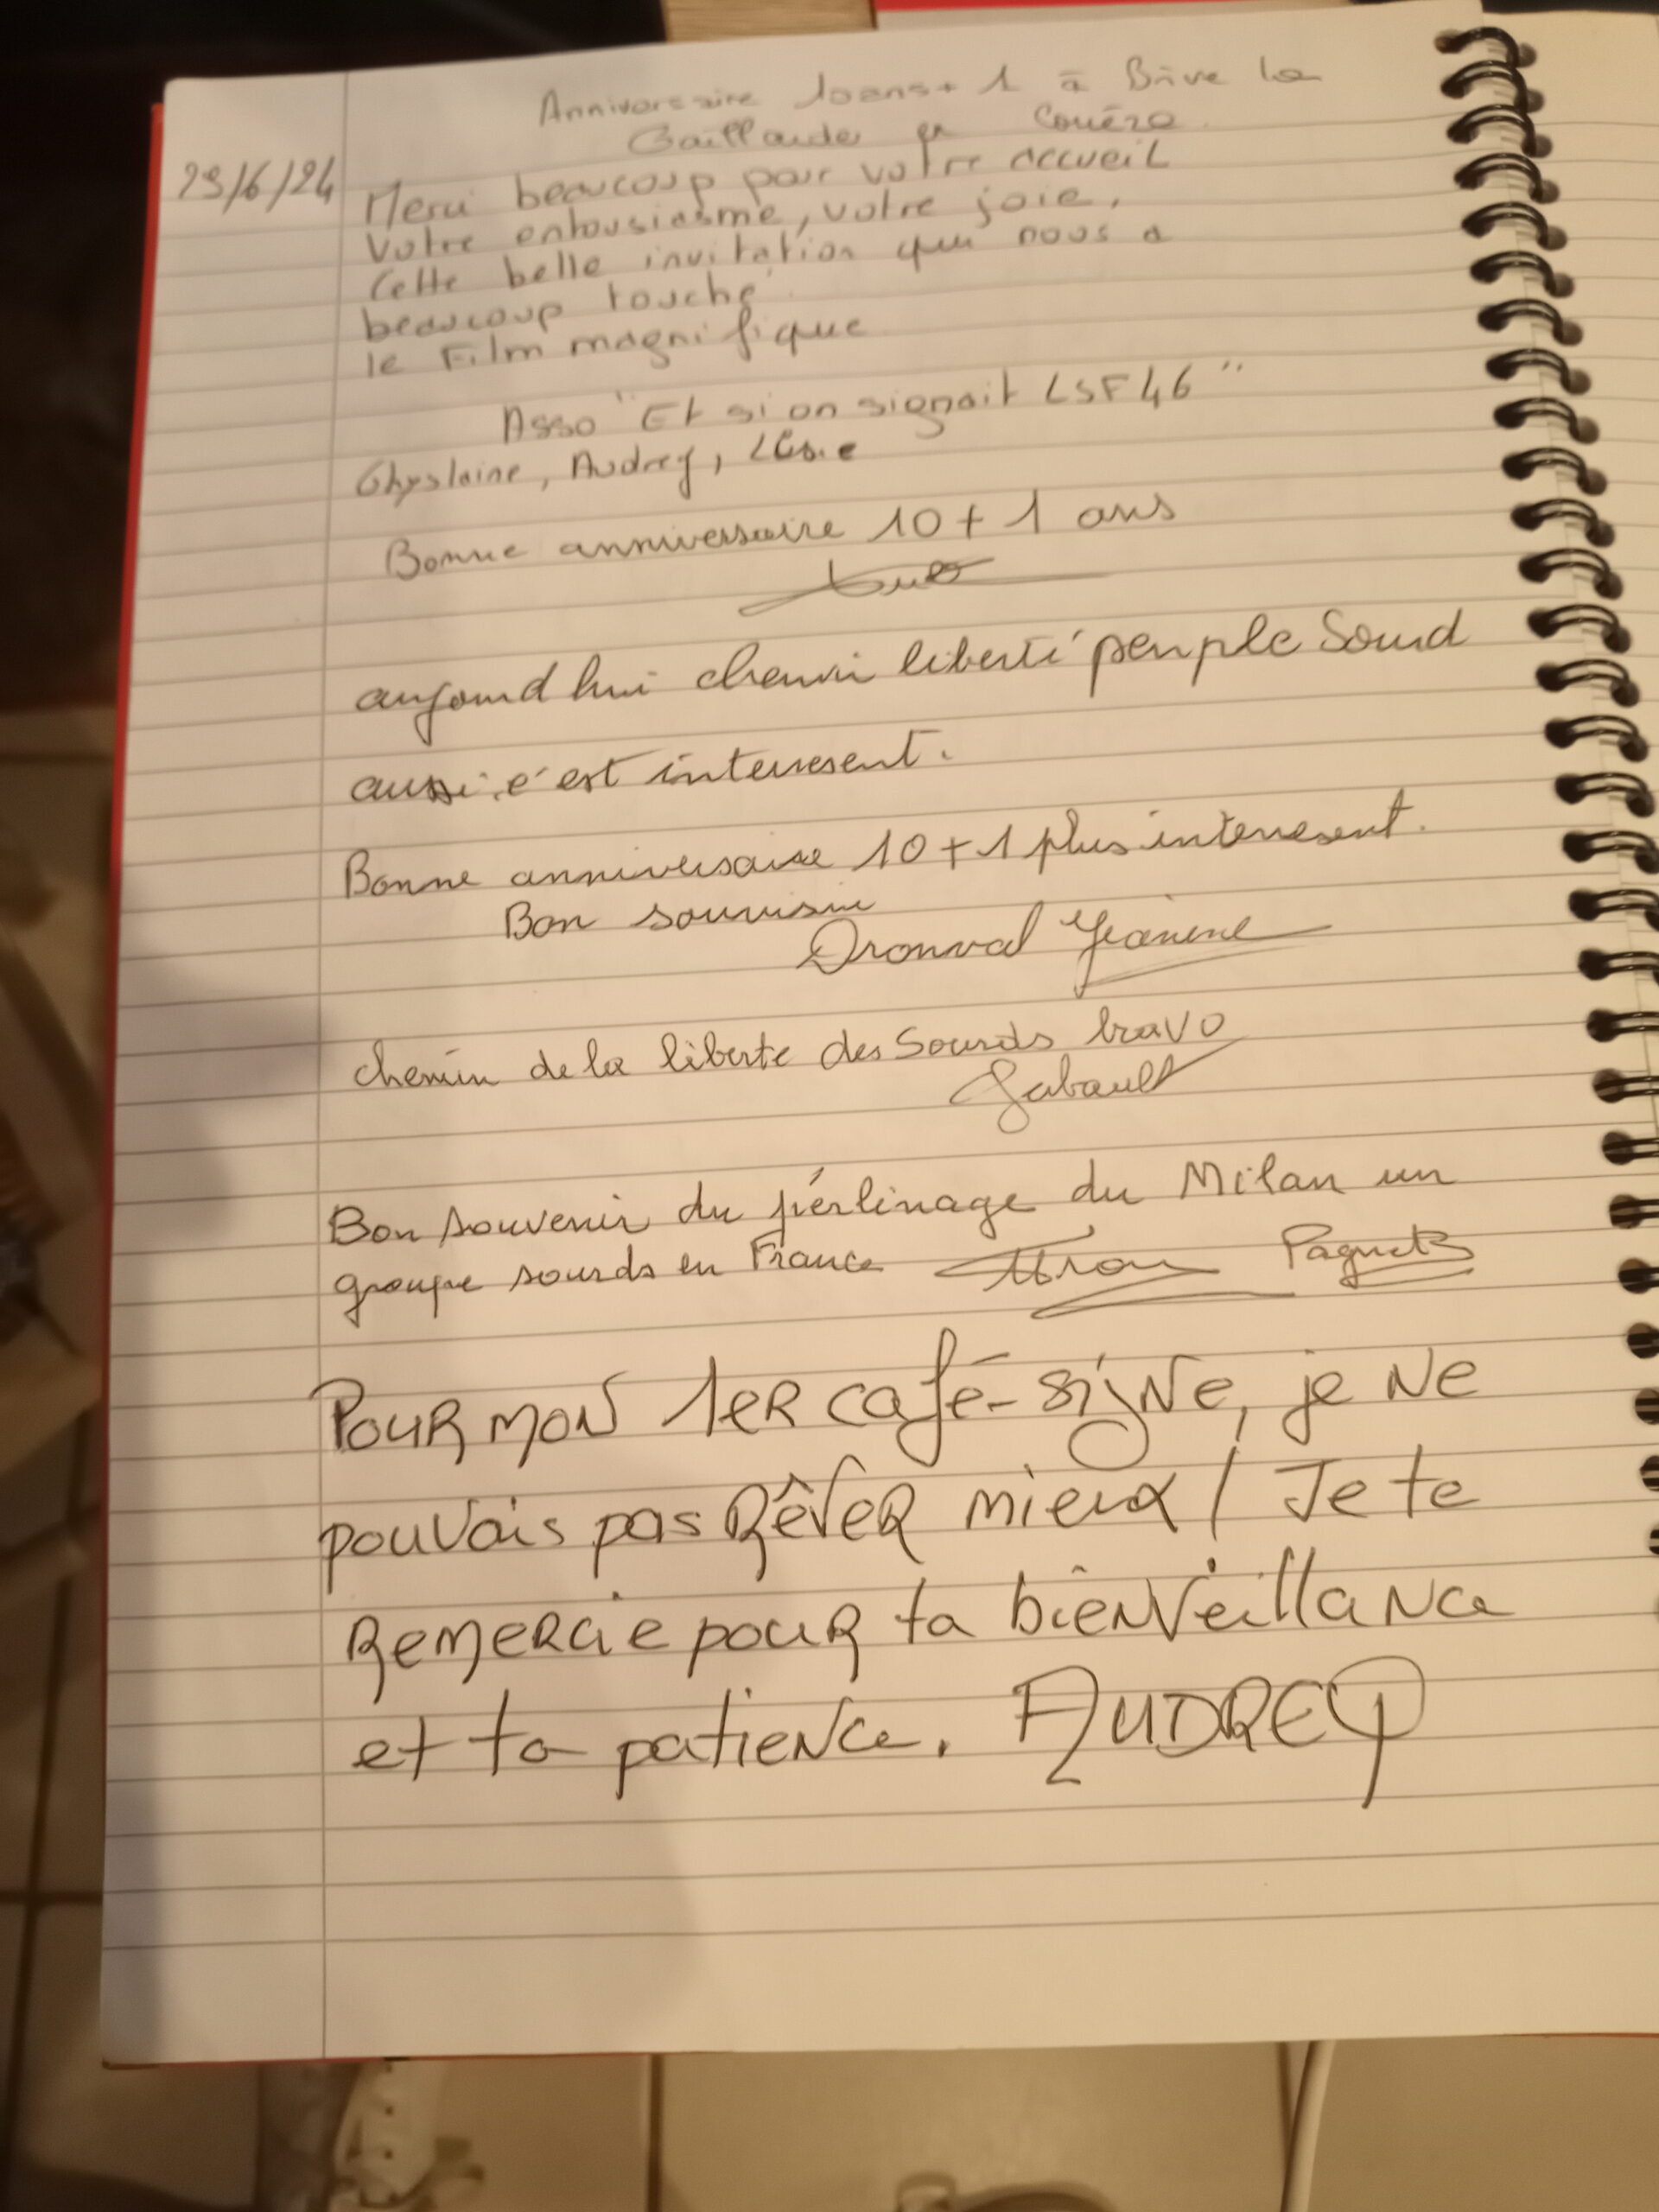 Anniversaire 10ans + 1 à Brive la
Gaillarde en Corrèze.
29/6/24
Merci beaucoup pour votre accueil
Votre entousiasme, votre joie,
Cette belle invitation qui nous a
beaucoup touché.
le Film magnifique
Asso "Et si on signait LSF46"
Ghyslaine, Audrey,
Bonne anniversaire 10 + 1 ans
aujourd hui chemin liberté peuple Sourd
aussi c'est interresent.
Bonne anniversaire 10 + 1 plus interresent.
Bon
Dronval Jeanine
chemin de la liberte des Sourds bravo
Bon souvenir du pérlinage du Milan un
groupe sourds en France
POUR MON 1eR café-signe, je Ne
pouvais pas Rêver mieux ! Je te
Remercie pour ta bienveillance
et ta patience. AUDREY